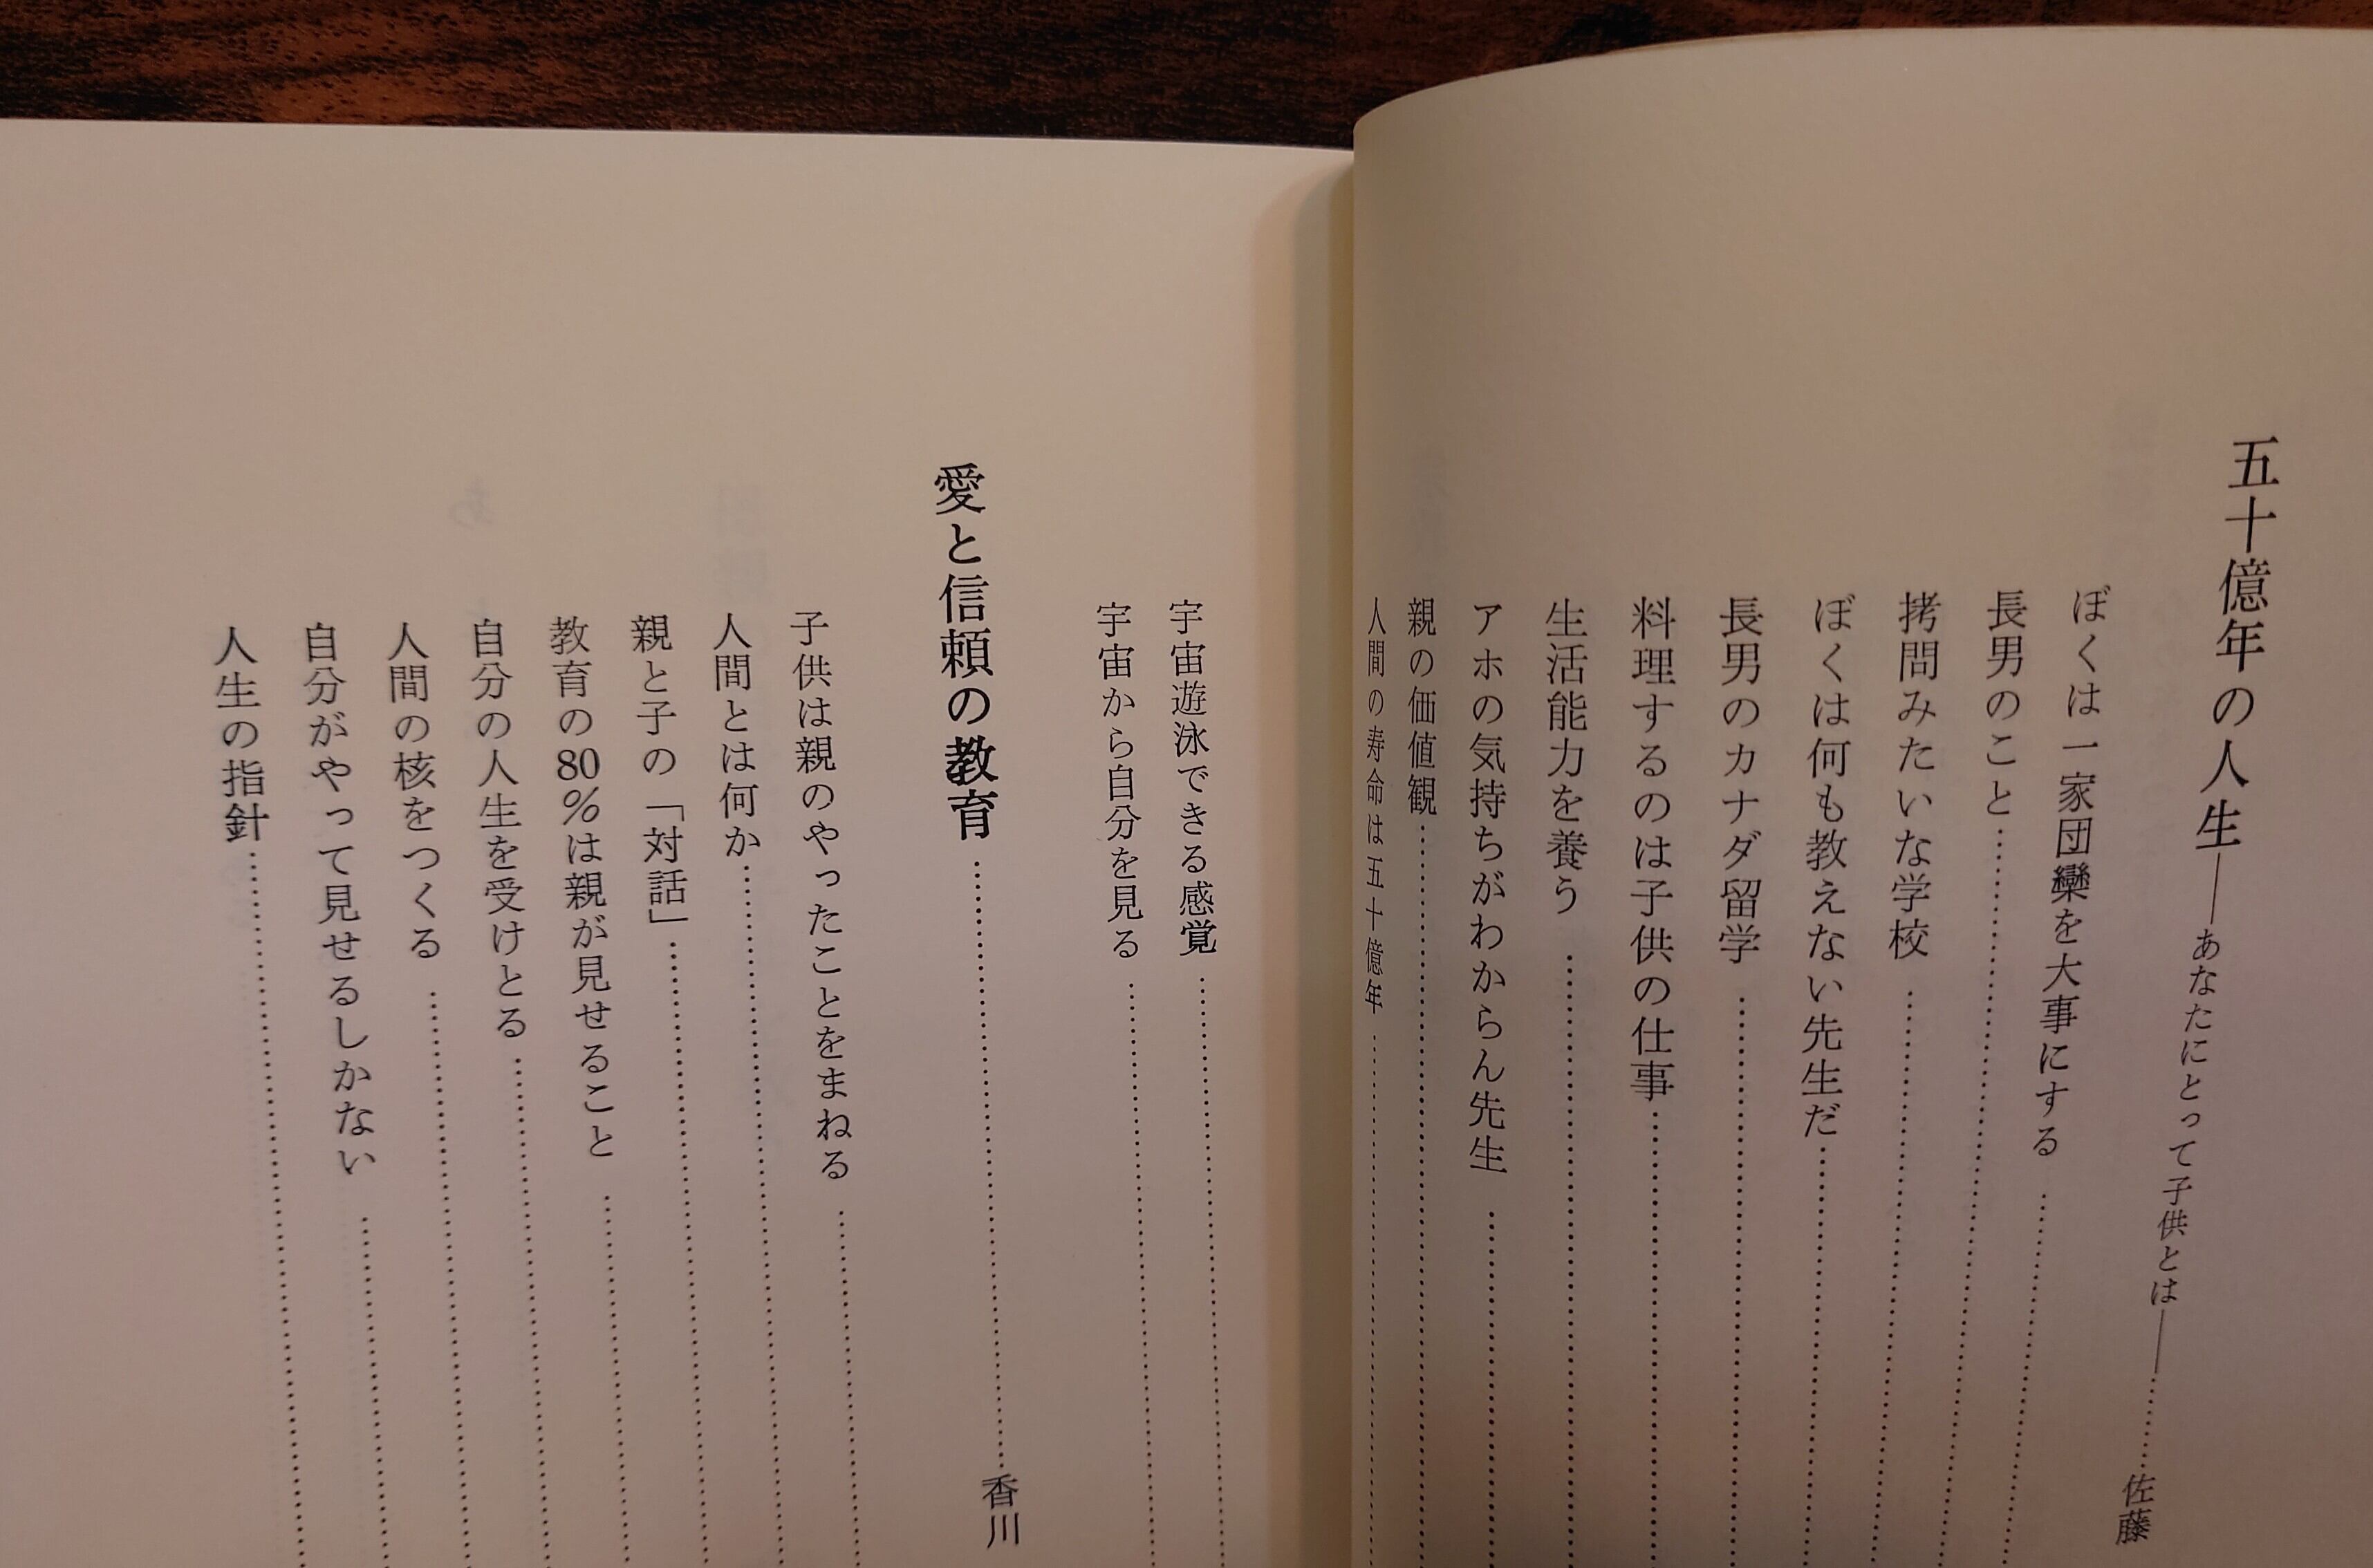 五十億年の人生――あなたにとって子供とは――…………佐藤
ぼくは一家団欒を大事にする…………
長男のこと…………
拷問みたいな学校…………
ぼくは何も教えない先生だ…………
長男のカナダ留学…………
料理するのは子供の仕事…………
生活能力を養う…………
アホの気持ちがわからん先生…………
親の価値観…………
人間の寿命は五十億年…………
宇宙遊泳できる感覚…………
宇宙から自分を見る…………
愛と信頼の教育…………香川
子供は親のやったことをまねる…………
人間とは何か…………
親と子の「対話」…………
教育の80%は親が見せること…………
自分の人生を受けとる…………
人間の核をつくる…………
自分がやって見せるしかない…………
人生の指針…………